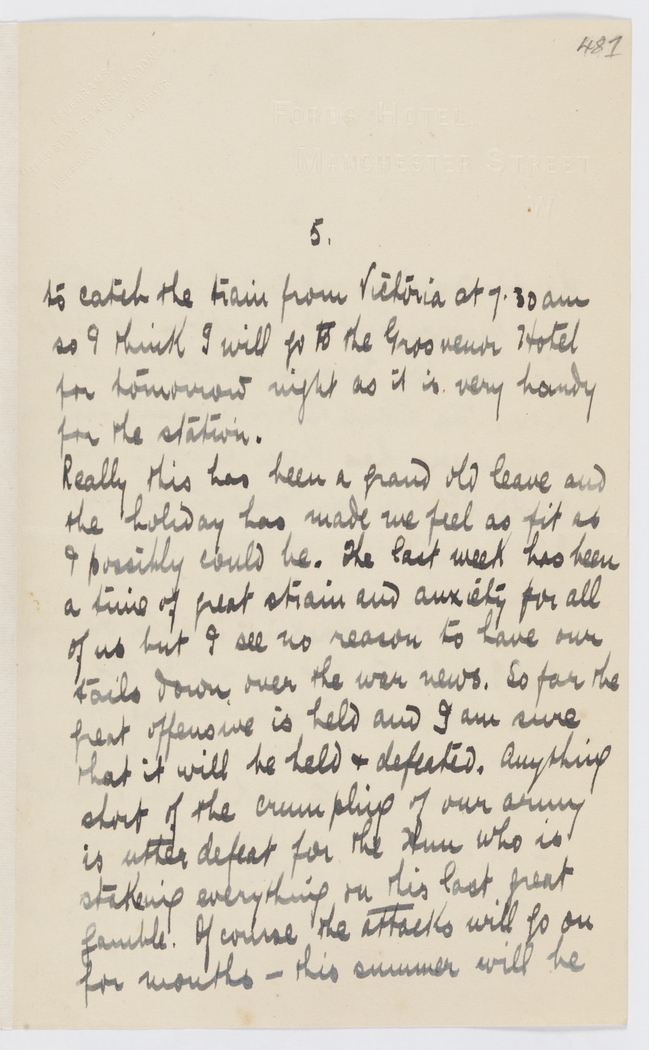 481
FORDS HOTEL.
MANCHESTER STREET
5.
to catch the train from Victoria at 7.30 am
so I think I will go to the Grosvenor Hotel
for tomorrow night as it is very handy
for the station.
Really this has been a grand old leave and
the holiday has made me feel as fit as
I possibly could be. The last week has been
a time of great strain and anxiety for all
of us but I see no reason to have our
tails down over the war news. So far the
great offensive is held and I am sure
that it will be held & defeated. Anything
short of the crumpling of our army
is utter defeat for the Hun who is
staking everything on this last great
gamble. Of course the attacks will go on
for months – this summer will be